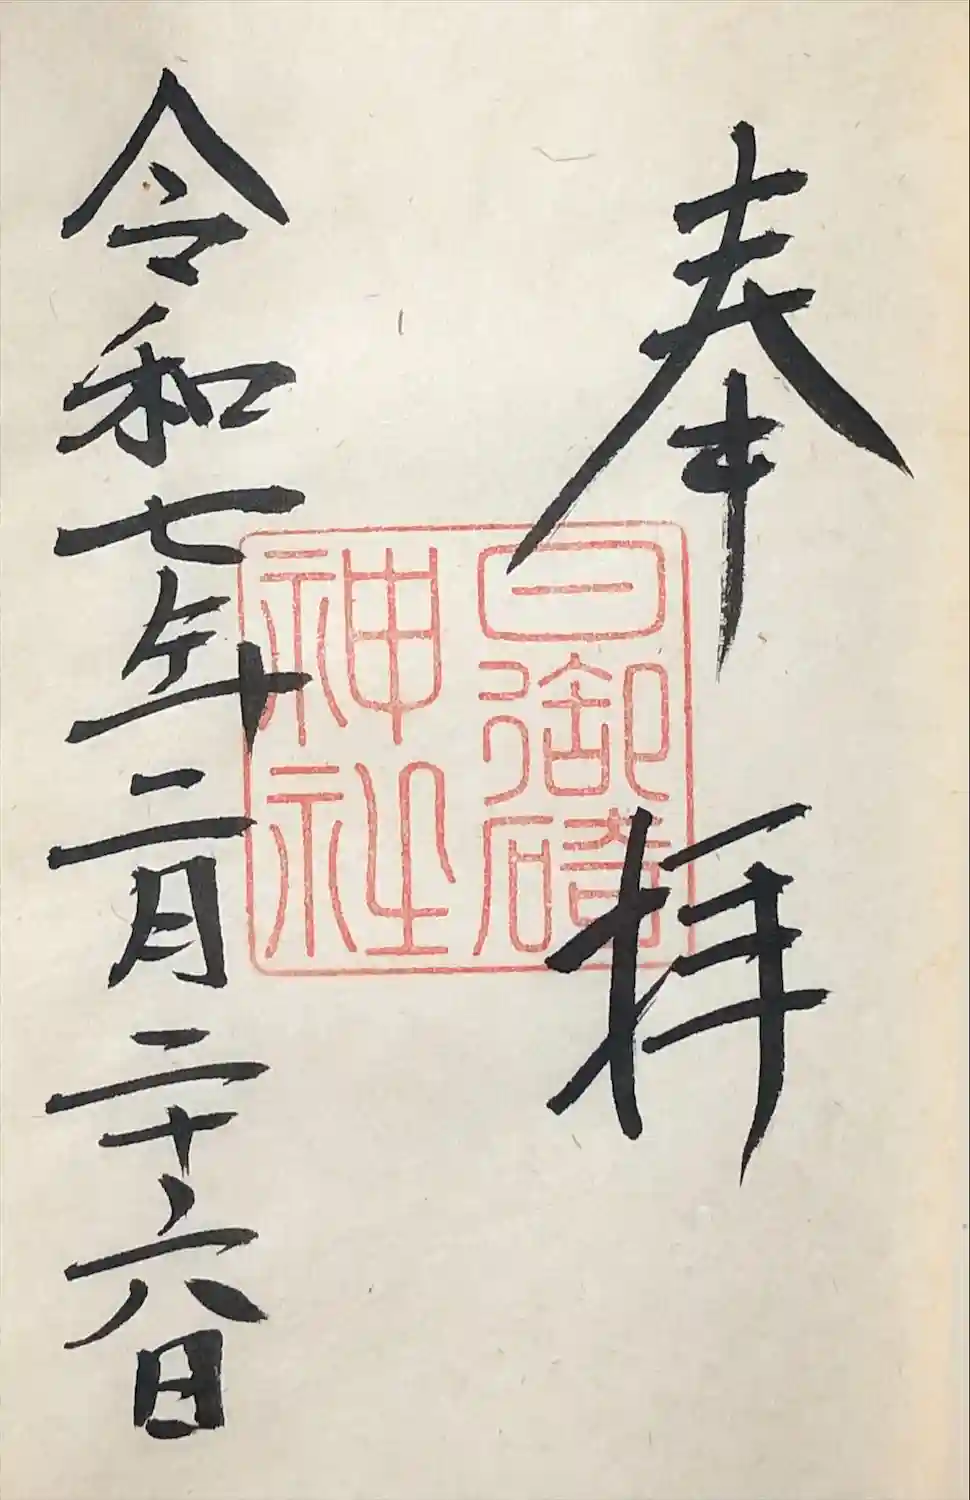 奉拝
日御碕
神社
令和七年二月二十六日